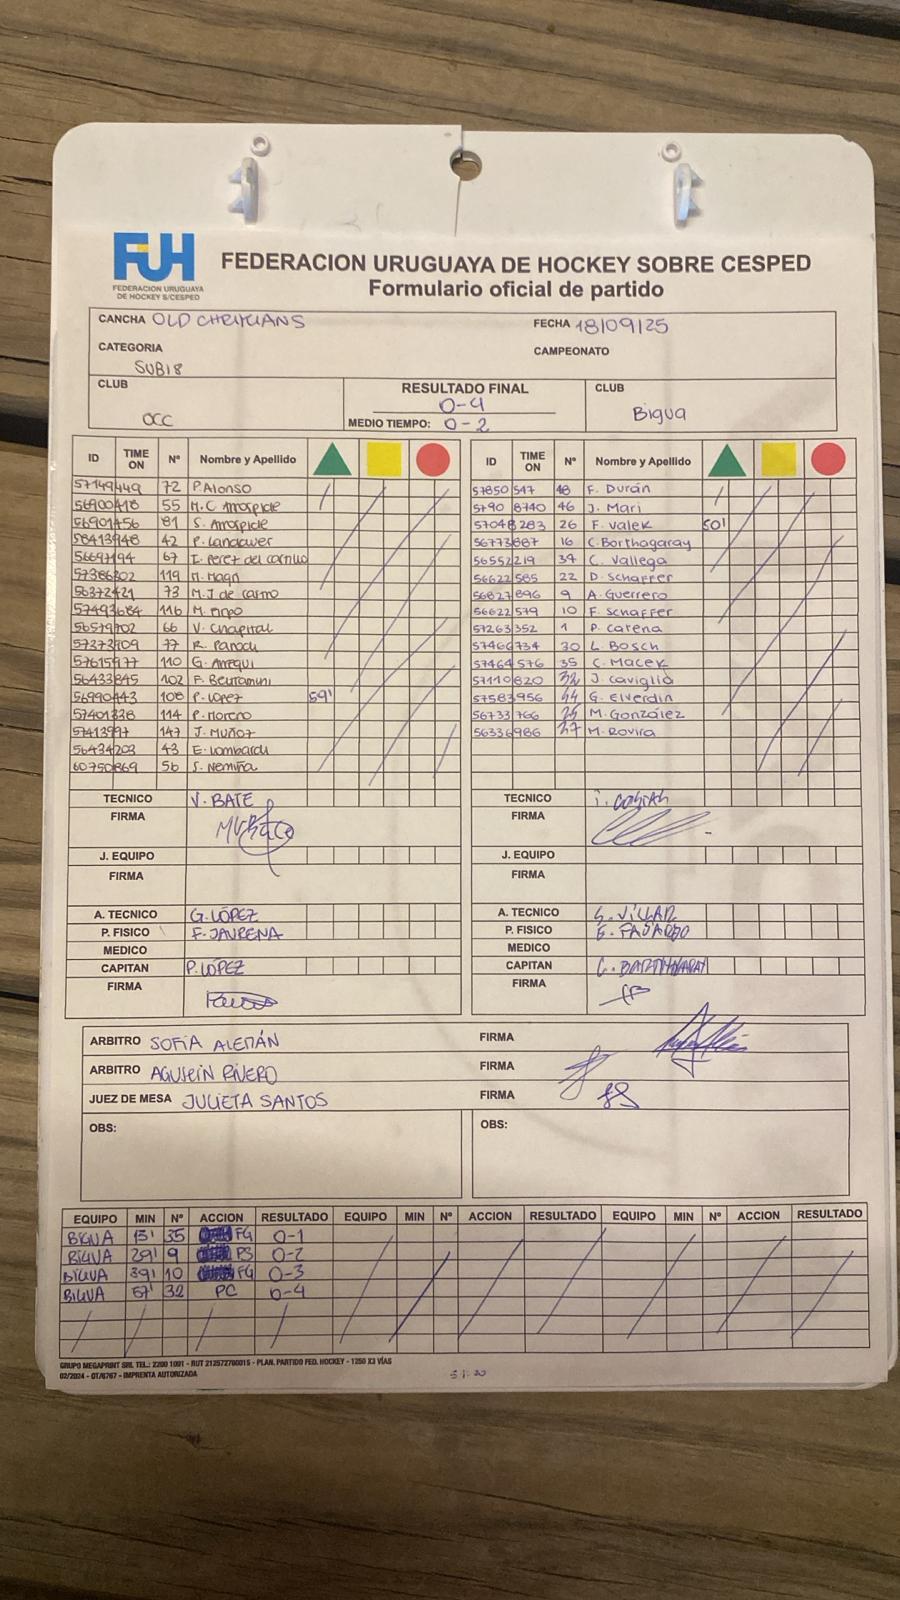 FUH
FEDERACION URUGUAYA
DE HOCKEY S/CESPED
FEDERACION URUGUAYA DE HOCKEY SOBRE CESPED
Formulario oficial de partido
CANCHA OLD CHRITIANS FECHA 18/09/25
CATEGORIA SUB18 CAMPEONATO
CLUB OCC
RESULTADO FINAL 0-4
MEDIO TIEMPO: 0-2
CLUB Bigua
ID TIME ON Nº Nombre y Apellido
57149449 72 P. Alonso
56900418 55 M.C Arrospide
56901456 81 S. Arrospide
58413948 42 P. Landauer
56697194 67 I. Perez del
57386202 119 M. Magri
56372421 73 M.J de
57493684 116 M.
56579702 66 V. Chapital
57373909 77 R.
57615977 110 G. Arregui
56433845 102 F.
56990443 108 P. López 59'
57401328 114 P. Moreno
57413997 147 J. MUÑOZ
56434203 43 E. Lombardi
60750869 56 S. Nemiña
ID TIME ON Nº Nombre y Apellido
57850547 48 F. Durán
57908740 46 J. Mari
57048283 26 F. Valek 50'
56773887 16 C. Borthagaray
56552219 34 C. Vallega
56622585 22 D. Schaffer
56827896 9 A. Guerrero
56622579 10 F. Schaffer
57263352 1 P. Carena
57466734 30 L. Bosch
57464576 35 C. Macek
57110820 32 J. Caviglia
57583956 44 G. Elverdin
56733766 25 M. González
56336986 27 M. Rovira
TECNICO V. BATE
FIRMA
J. EQUIPO
FIRMA
A. TECNICO G. LÓPEZ
P. FISICO F. JAURENA
MEDICO
CAPITAN P. LÓPEZ
FIRMA
TECNICO
FIRMA
J. EQUIPO
FIRMA
A. TECNICO S. VILLAR
P. FISICO E. FAJARDO
MEDICO
CAPITAN C.
FIRMA
ARBITRO SOFÍA ALEMÁN FIRMA
ARBITRO AGUSTÍN RIVERO FIRMA
JUEZ DE MESA JULIETA SANTOS FIRMA
OBS: OBS:
EQUIPO MIN Nº ACCION RESULTADO EQUIPO MIN Nº ACCION RESULTADO EQUIPO MIN Nº ACCION RESULTADO
BIGUA 15' 35 FG 0-1
BIGUA 29' 9 PS 0-2
BIGUA 39' 10 FG 0-3
BIGUA 57' 32 PC 0-4
GRUPO MEGAPRINT SRL TEL.: 2200 1091 - RUT 212572760015 - PLAN. PARTIDO FED. HOCKEY - 1250 X3 VÍAS
02/2024 - OT/6767 - IMPRENTA AUTORIZADA